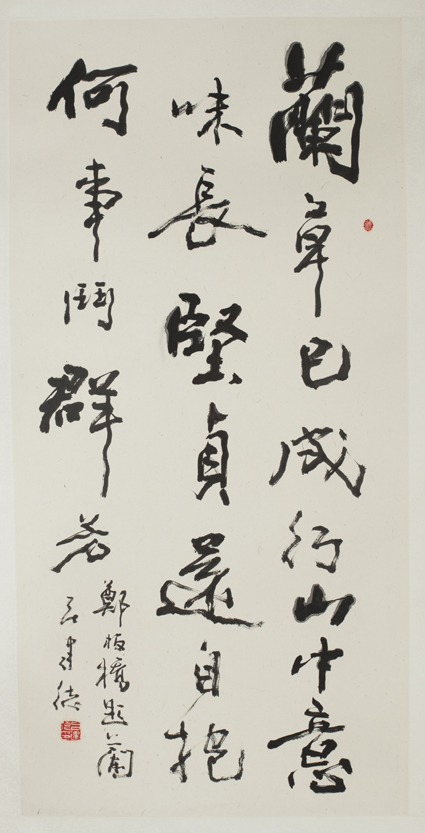 蘭草已成行山中意
味長堅貞還自抱
何事鬥群芳
鄭板橋題蘭
建德